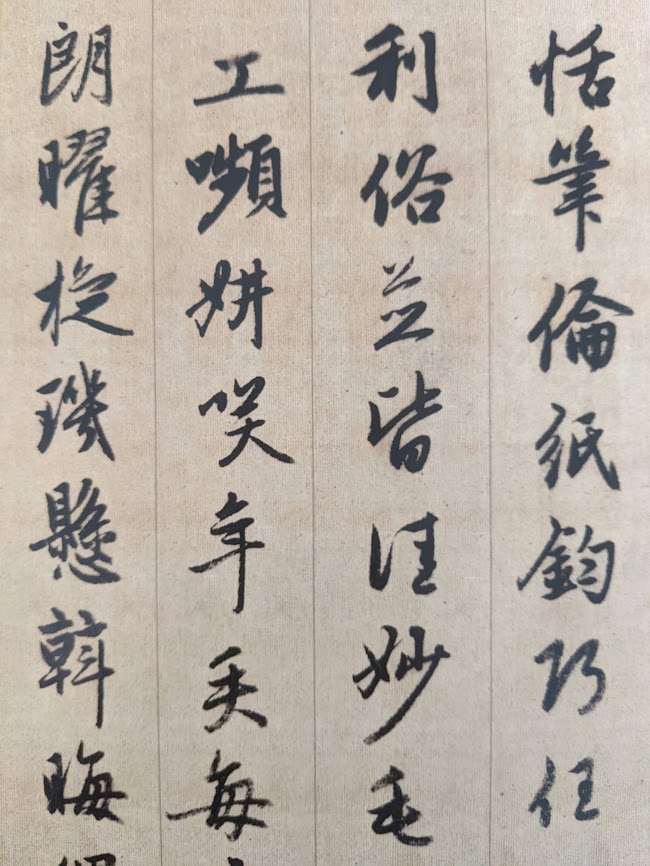 恬筆倫紙鈞巧任
利俗並皆佳妙毛
工嚬妍咲年矢每
朗曜旋璣懸斡晦